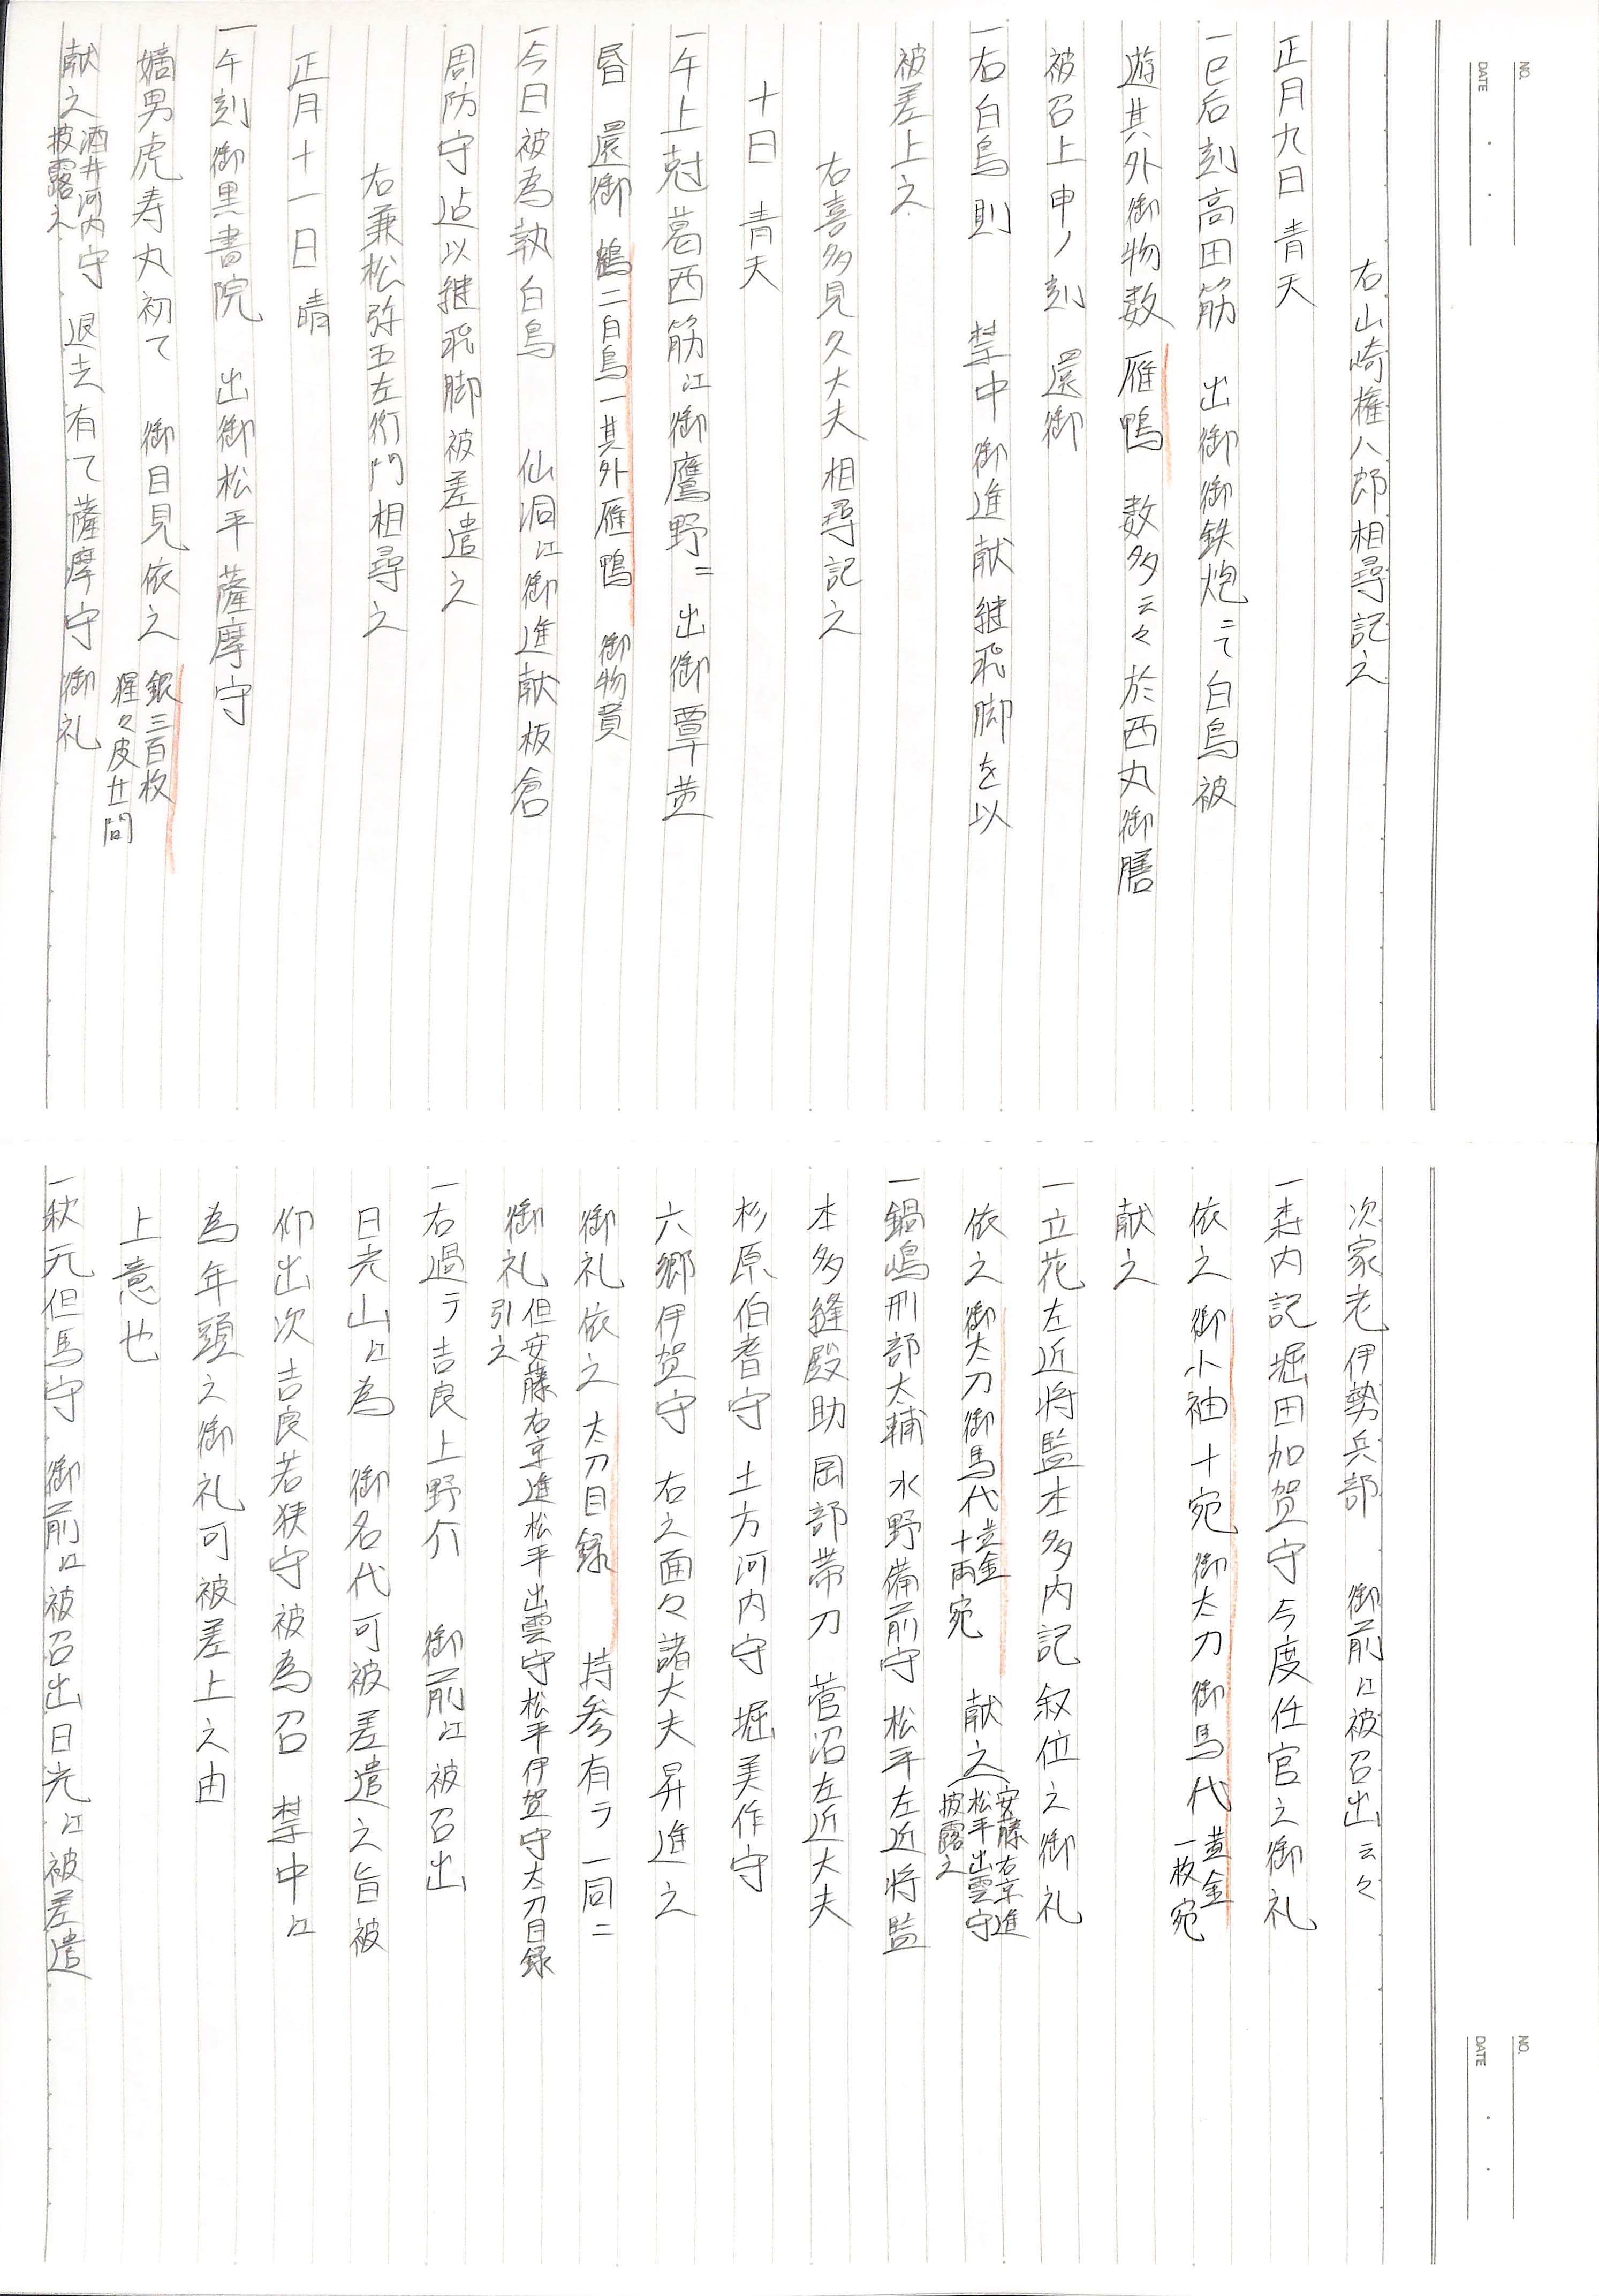 NO.
DATE
右山崎権八郎相尋記之
正月九日 青天
一巳后刻高田筋 出御御鉄炮ニて白鳥被
遊其外御物数 雁鴨 数多云々於西丸御膳
被召上申ノ刻 還御
一右白鳥則 禁中御進献継飛脚を以
被差上之
右喜多見久大夫相尋記之
十日 青天
一午上尅葛西筋江御鷹野ニ出御覃黄
昏 還御 鶴二白鳥一其外雁鴨 御物員
一今日被為執白鳥 仙洞江御進献板倉
周防守迠以継飛脚被差遣之
右兼松弥五左衛門相尋之
正月十一日 晴
一午刻御黒書院 出御松平薩摩守
嫡男虎寿丸初て 御目見依之 銀三百枚
猩々皮廿間
献之 酒井河内守
披露之 退去有て薩摩守御礼
NO.
DATE
次家老伊勢兵部 御前江被召出云々
一森内記堀田加賀守今度任官之御礼
依之 御小袖十宛 御太刀 御馬代 黄金
一枚宛
献之
一立花左近将監本多内記叙位之御礼
依之 御太刀御馬代 黄金
十両宛 献之 安藤右京進
松平出雲守
披露之
一鍋嶋刑部太輔 水野備前守 松平左近将監
本多縫殿助 岡部帯刀 菅沼左近大夫
杉原伯耆守 土方河内守 堀美作守
六郷伊賀守 右之面々諸大夫昇進之
御礼依之 太刀目録 持参有テ一同ニ
御礼 但安藤右京進松平出雲守松平伊賀守太刀目録
引之
一右過テ吉良上野介 御前江被召出
日光山江為 御名代可被差遣之旨被
仰出次吉良若狭守被為召 禁中江
為年頭之御礼可被差上之由
上意也
一秋元但馬守 御前江被召出日光江被差遣